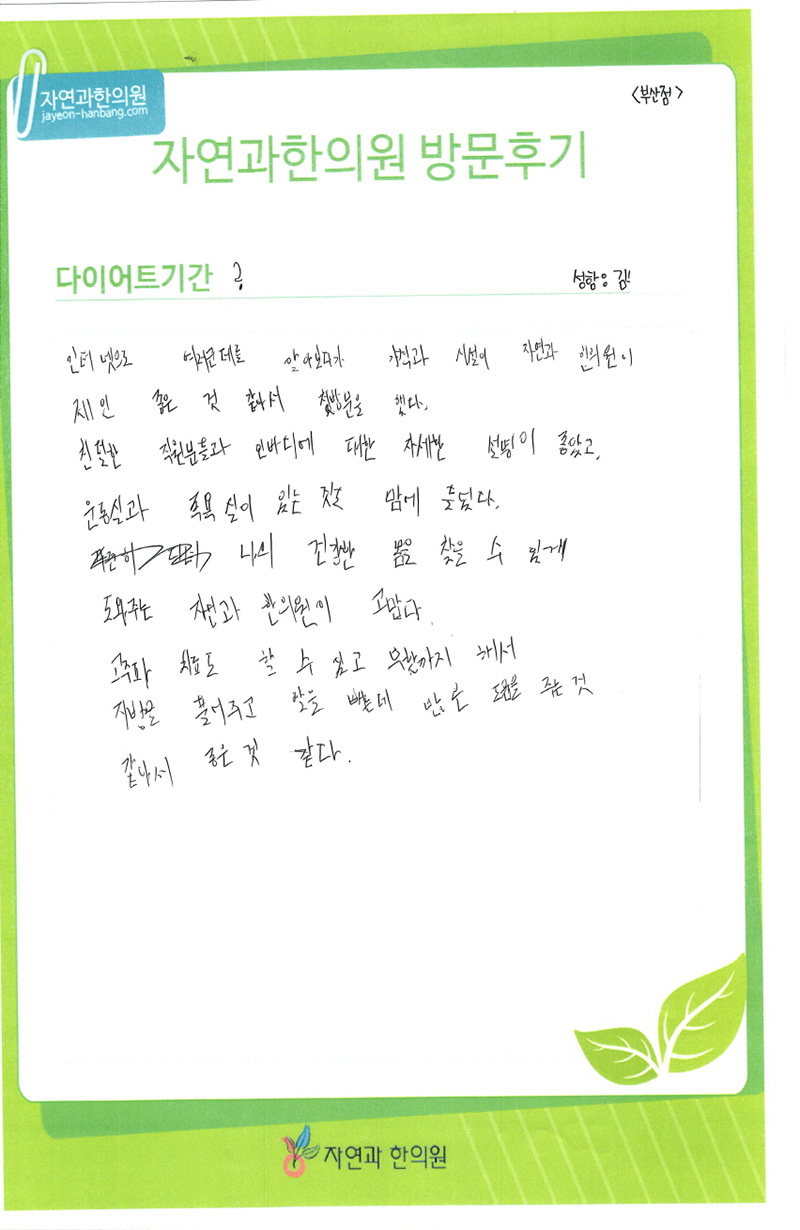 자연과한의원
jayeon-hanbang.com
<부산점>
자연과한의원 방문후기
다이어트기간 ?
인터넷으로 여러군데를 알아보다가 가격과 시설이 자연과 한의원이
제일 좋은 것 같아서 첫방문을 했다.
친절한 직원분들과 인바디에 대한 자세한 설명이 좋았고,
운동실과 족욕실이 있는 것 맘에 들었다.
나의 건강한 몸을 찾을 수 있게
도와주는 자연과 한의원이 고맙다.
고주파 치료도 할 수 있고 부항까지 해서
지방을 풀어주고 살을 빼는데 많은 도움을 주는 것
같아서 좋은 것 같다.
자연과 한의원